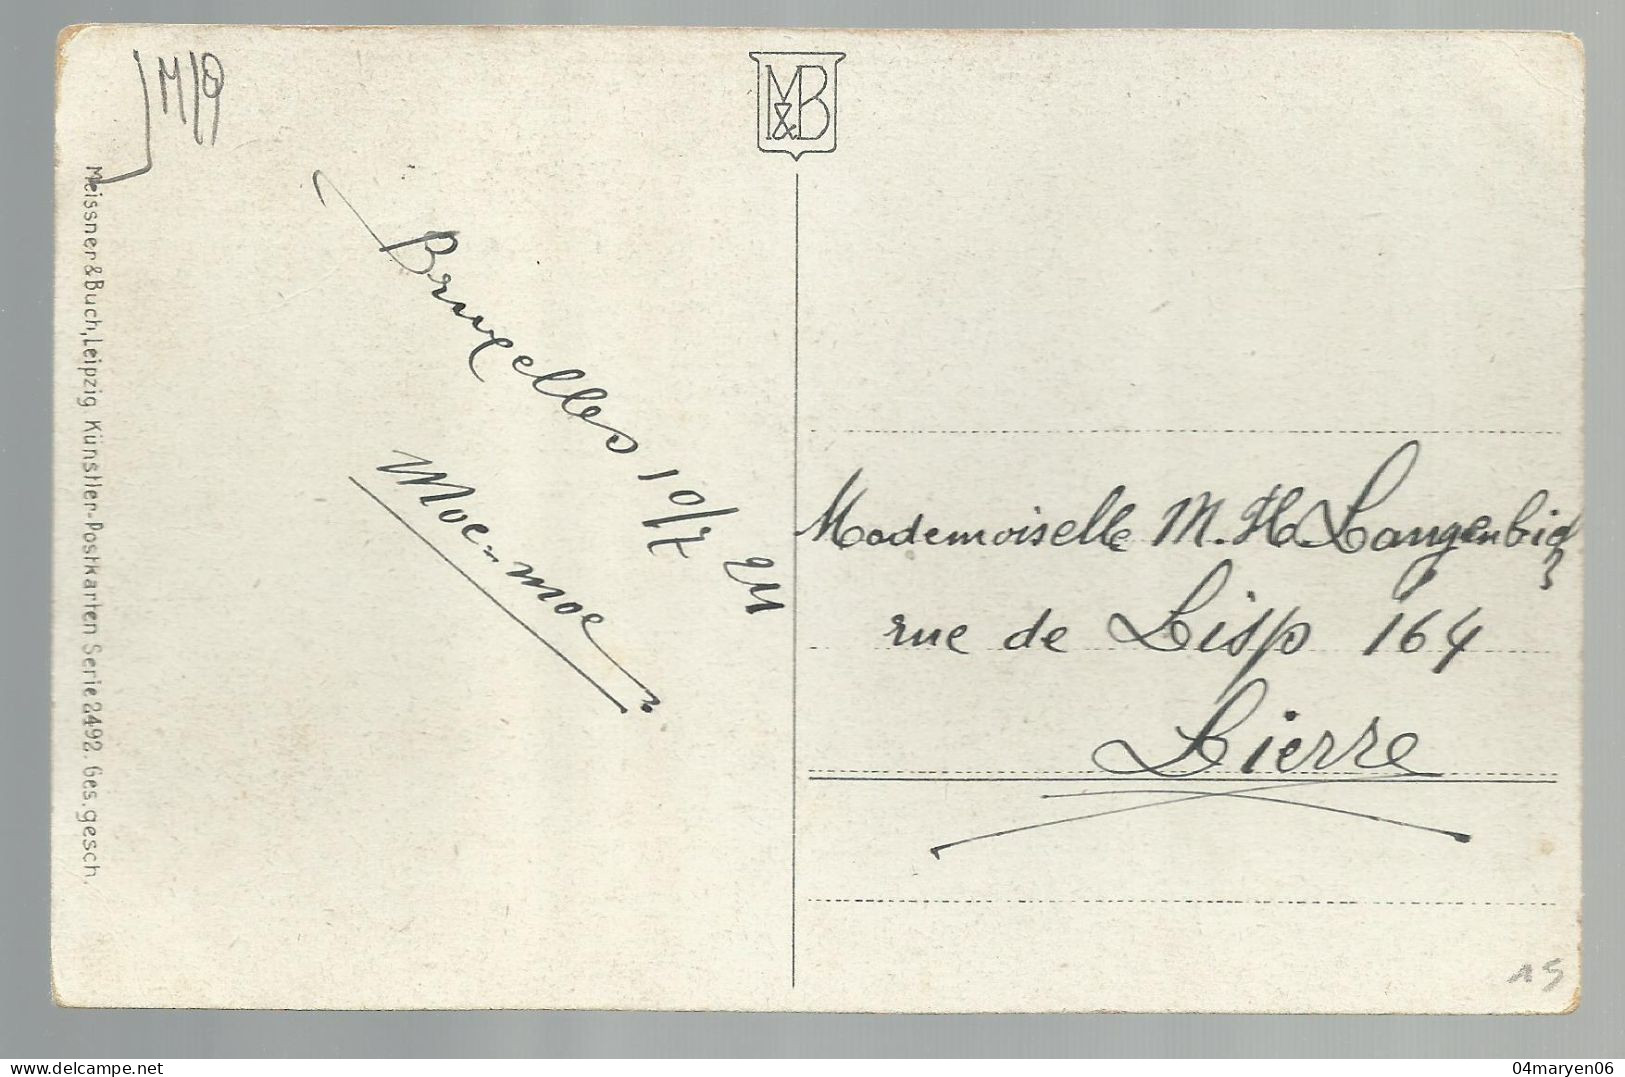 M/9
M&B
Meissner & Buch, Leipzig Künstler-Postkarten Serie 2492. Ges. gesch.
Bruxelles 10/7 24
Moe-moe
Mademoiselle M. H. Langenbick
rue de Lisp 164
Lierre
15
www.delcampe.net
04maryen06